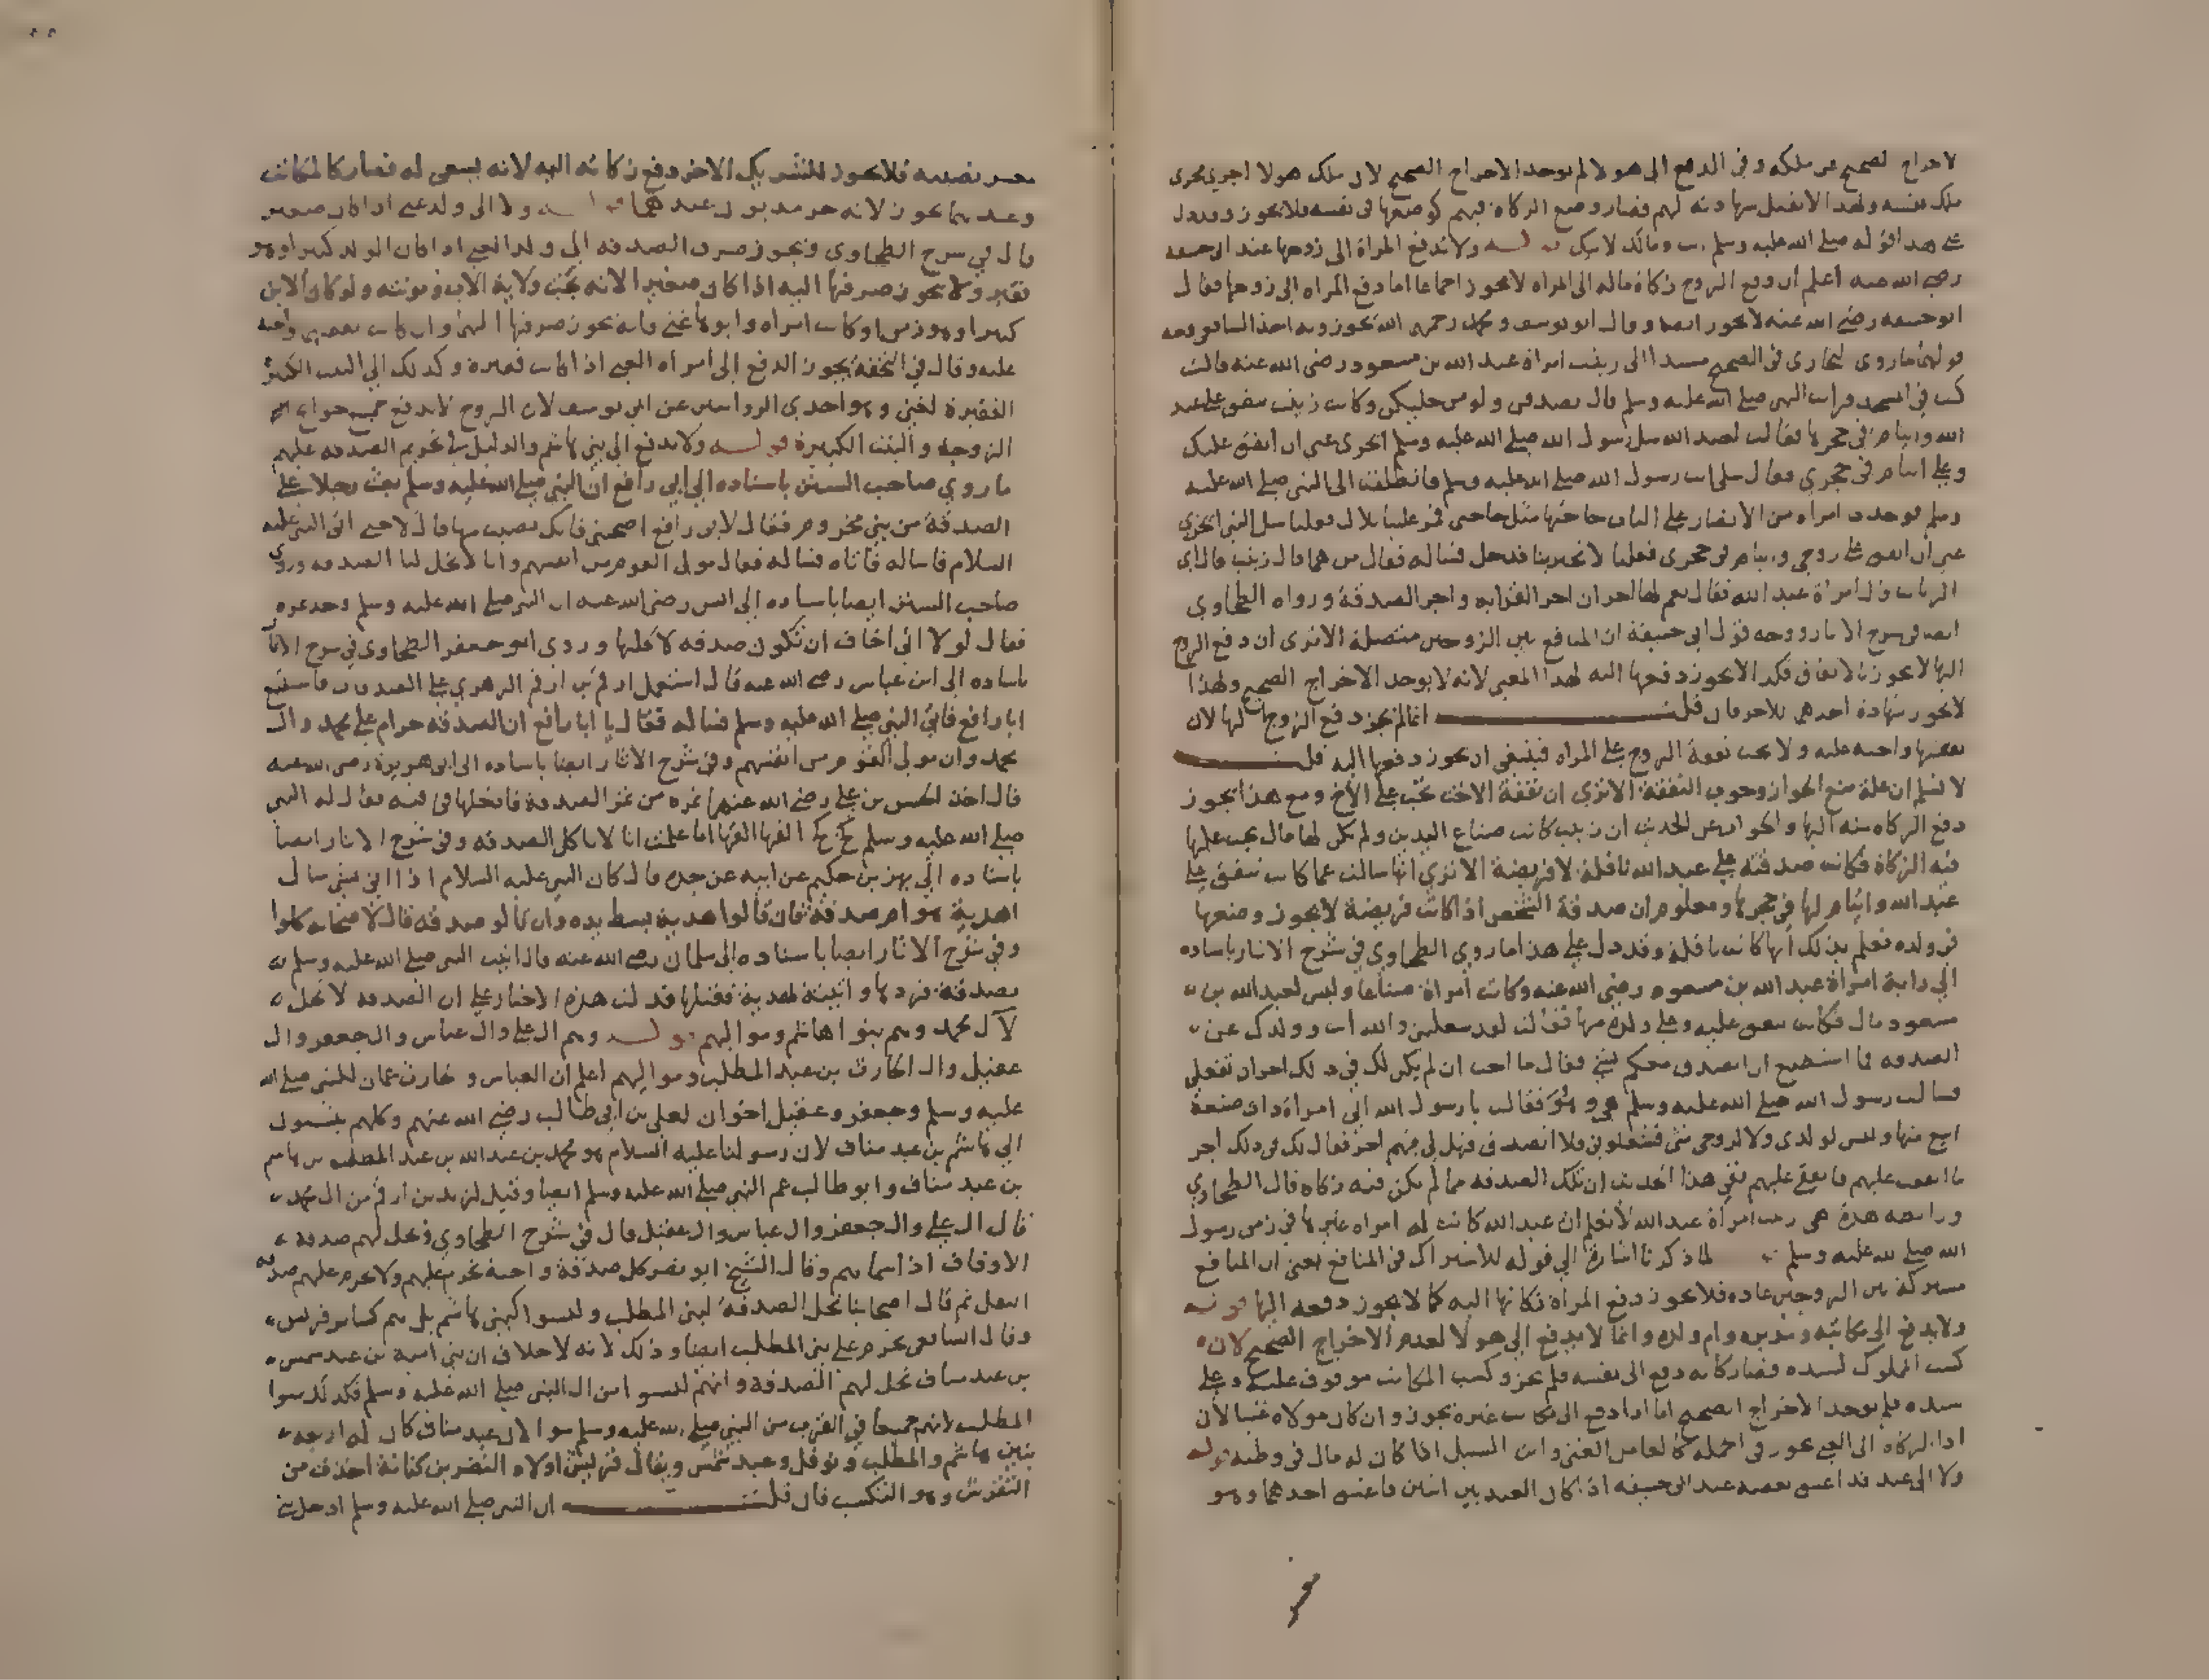 لاخراج الصحيح عن ملكه وفي الدفع الى هولا لم يوجد الاخراج الصحيح لان ملك هولا اجري مجرى
ملك نفسه ولهذا لا تقبل شهادته لهم فصار وضع الزكاة فيهم كوضعها في نفسه فلا يجوز وقد دل
على هذا قوله صلى الله عليه وسلم انت ومالك لابيك قوله ولا تدفع المراة الى زوجها عند ابي حنيفة
رضي الله عنه اعلم ان دفع الزوج زكاة ماله الى المراه لا يجوز اجماعا اما دفع المراه الى زوجها فقال
ابو حنيفه رضي الله عنه لا يجوز ايضا وقال ابو يوسف ومحمد رحمهما الله يجوز وبه اخذ الشافعي وجه
قولهما ما روى البخاري في الصحيح مسندا الى زينب امراة عبد الله بن مسعود رضي الله عنه قالت
كنت في المسجد فرايت النبي صلى الله عليه وسلم قال تصدقن ولو من حليكن وكانت زينب تنفق على عبد
الله وايتام في حجرها فقالت لعبد الله سل رسول الله صلى الله عليه وسلم ايجزى عني ان انفق عليك
وعلى ايتام في حجري فقال سلي انت رسول الله صلى الله عليه وسلم فانطلقت الى النبي صلى الله عليه
وسلم فوجدت امراة من الانصار على الباب حاجتها مثل حاجتي فمر علينا بلال فقلنا سل النبي ايجزي
عني ان انفق على زوجي وايتام في حجري فقلنا لا تخبر بنا فدخل فساله فقال من هما قال زينب قال اي
الزيانب قال امراة عبد الله فقال نعم لها اجران اجر القرابه واجر الصدقة ورواه الطحاوي
ايضا في شرح الاثار ووجه قول ابي حنيفة ان المنافع بين الزوجين متصلة الا ترى ان دفع الزوج
اليها لا يجوز بالاتفاق فكذا لا يجوز دفعها اليه لهذا المعنى لانه لا يوجد الاخراج الصحيح ولهذا
لا يجوز شهادة احدهما للاخر فان قلت انما لم يجز دفع الزوج لها لان
نفقتها واجبه عليه ولا يجب نفقة الزوج على المراه فينبغي ان يجوز دفعها اليه قلت
لا نسلم ان علة منع الجواز وجوب النفقة الا ترى ان نفقة الاخت تجب على الاخ ومع هذا يجوز
دفع الزكاه منه اليها والجواب عن الحديث ان زينب كانت صناع اليدين ولم يكن لها مال يجب عليها
فيه الزكاة فكانت صدقته على عبد الله نافلة لا فريضة الا ترى انها سالت عما كانت تنفق على
عبد الله وايتام لها في حجرها ومعلوم ان صدقة الشخص اذا كانت فريضة لا يجوز وضعها
في ولده فعلم بذلك انها كانت نافلة وقد دل على هذا ما روي الطحاوي في شرح الاثار باسناده
الى رابة امراة عبد الله بن مسعود رضي الله عنه وكانت امراة صناعا وليس لعبد الله بن
مسعود مال فكانت تنفق عليه وعلى ولده منها فقالت لقد شغلتني والله انت وولدك عن
الصدقه فما استطيع ان اتصدق معكم بشي فقال ما احب ان لم يكن لك في ذلك اجر ان تفعلي
فسالت رسول الله صلى الله عليه وسلم هي وهو فقالت يا رسول الله اني امراة ذات صنعة
ابيع منها وليس لولدي ولا لزوجي شي فشغلوني فلا اتصدق فهل لي فيهم اجر فقال لك في ذلك اجر
ما انفقت عليهم فانفقي عليهم ففي هذا الحديث ان تلك الصدقه مما لم يكن فيه زكاه قال الطحاوي
ورايطه هذه هي زينب امراة عبد الله لا نعلم ان عبد الله كانت له امراه غيرها في زمن رسول
الله صلى الله عليه وسلم لما ذكرنا اشارة الى قوله للاشتراك في المنافع يعني ان المنافع
مشتركة بين الزوجين عاده فلا يجوز دفع المراة زكاتها اليه كما لا يجوز دفعه اليها قوله
ولا يدفع الى مكاتبه ومدبره وام ولده وانما لا يدفع الى هولا لعدم الاخراج الصحيح لان
كسب المملوك لسيده فصار كانه دفع الى نفسه فلم يجز وكسب المكاتب موقوف عليه وعلى
سيده فلم يوجد الاخراج الصحيح اما اذا دفع الى مكاتب غيره يجوز وان كان مولاه غنيا لان
اداء الزكاه الى الغني يجوز في الجمله كالعامل الغني وابن السبيل اذا كان له مال في وطنه قوله
ولا الى عبد قد اعتق بعضه عند ابي حنيفه اذا كان العبد بين اثنين فاعتق احدهما وهو
معسر نصيبه فلا يجوز للشريك الاخر دفع زكاته اليه لانه يسعى له فصار كالمكاتب
وعندهما يجوز لانه حر مديون عندهما قوله ولا الى ولد غني اذا كان صغيرا
قال في شرح الطحاوي ويجوز صرف الصدقه الى ولد الغني اذا كان الولد كبيرا وهو
فقير ولا يجوز صرفها اليه اذا كان صغيرا لانه تحت ولاية الاب ومونته ولو كان الابن
كبيرا وهو زمن او كانت امراه وابوها غني فانه يجوز صرفها اليهما وان كانت نفقتهما واجبه
عليه وقال في التحفة يجوز الدفع الى امراه الغني اذا كانت فقيرة وكذلك الى البنت الكبيرة
الفقيرة لغني وهو احدي الروايتين عن ابي يوسف لان الزوج لا يدفع جميع حوائج
الزوجة والبنت الكبيرة قوله ولا يدفع الى بني هاشم والدليل على تحريم الصدقه عليهم
ما روي صاحب السنن باسناده الى ابي رافع ان النبي صلى الله عليه وسلم بعث رجلا على
الصدقة من بني مخزوم فقال لابي رافع اصحبني فانك تصيب منها قال لا حتى اتى النبي عليه
السلام فاساله فاتاه فساله فقال مولى القوم من انفسهم وانا لا تحل لنا الصدقه وروي
صاحب السنن ايضا باسناده الى انس رضي الله عنه ان النبي صلى الله عليه وسلم وجد تمرة
فقال لولا اني اخاف ان تكون صدقه لاكلتها وروى ابو جعفر الطحاوي في شرح الاثار
باسناده الى ابن عباس رضي الله عنه قال استعمل ارقم بن ارقم الزهري على الصدقات فاستتبع
ابا رافع فاتي النبي صلى الله عليه وسلم فساله فقال يا ابا رافع ان الصدقه حرام على محمد وال
محمد وان مولى القوم من انفسهم وفي شرح الاثار ايضا باسناده الى ابي هريرة رضي الله عنه
قال اخذ الحسن بن علي رضي الله عنهما تمره من تمر الصدقة فادخلها في فيه فقال له النبي
صلى الله عليه وسلم كخ كخ القها القها اما علمت انا لا ناكل الصدقه وفي شرح الاثار ايضا
باسناده الى بهز بن حكيم عن ابيه عن جده قال كان النبي عليه السلام اذا اتي بشي سال
اهدية هو ام صدقة فان قالوا هدية بسط يده وان قالوا صدقه قال لاصحابه كلوا
وفي شرح الاثار ايضا باسناده الى سلمان رضي الله عنه قال اتيت النبي صلى الله عليه وسلم
بصدقة فردها واتيته بهدية فقبلها فدلت هذه الاخبار على ان الصدقه لا تحل
لال محمد وهم بنو اهاشم ومواليهم قوله وهم ال علي وال عباس وال جعفر وال
عقيل وال الحارث بن عبد المطلب ومواليهم اعلم ان العباس وحارث عمان للنبي صلى الله
عليه وسلم وجعفر وعقيل اخوان لعلي بن ابي طالب رضي الله عنهم وكلهم ينسبون
الى هاشم بن عبد مناف لان رسولنا عليه السلام هو محمد بن عبد الله بن عبد المطلب بن هاشم
بن عبد مناف وابو طالب عم النبي صلى الله عليه وسلم ايضا وقيل لزيد بن ارقم من ال محمد
قال ال علي وال جعفر وال عباس وال عقيل قال في شرح الطحاوي وتحل لهم صدقة
الاوقاف اذا سماهم وقال الشيخ ابو نصر كل صدقة واجبة تحرم عليهم ولا تحرم عليهم صدقه
النفل ثم قال اصحابنا تحل الصدقة لبني المطلب وليسوا كبني هاشم بل هم كسائر قريش
وقال الشافعي تحرم على بني المطلب ايضا وذلك لانه لا خلاف ان بني امية بن عبد شمس
بن عبد مناف تحل لهم الصدقة وانهم ليسوا من ال النبي صلى الله عليه وسلم فكذلك بنوا
المطلب لانهم جميعا في القرب من النبي صلى الله عليه وسلم سوا لان عبد مناف كان له اربعة
بنين هاشم والمطلب ونوفل وعبد شمس ويقال قريش اولاد النضر بن كنانة اخذت من
التقرش وهو التكسب فان قلت ان النبي صلى الله عليه وسلم ادخل بني